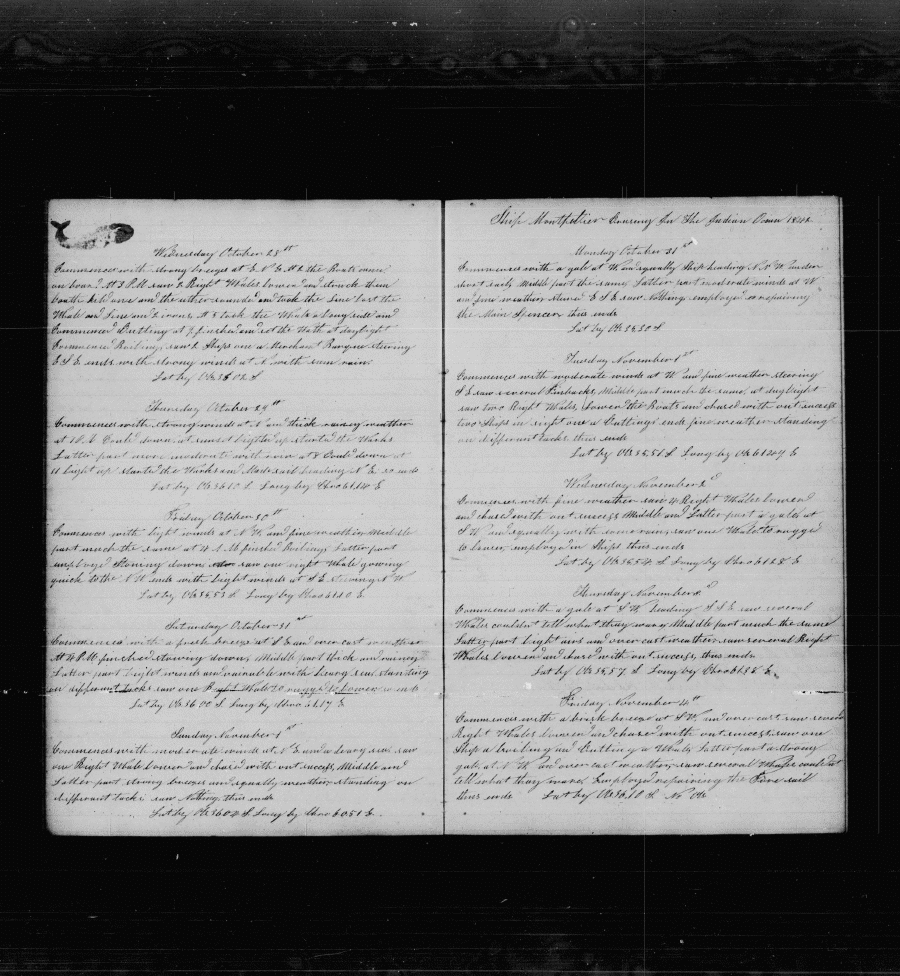 Wednesday October 28th
Commences with strong breezes at E.N.E. At 2 the Boats came
on board At 3 P.M. saw 2 Right Whales lowered and struck them
both held one and the other sounded and took the Line lost the
Whale and Line and 2 irons At 5 took the Whale alongside and
Commenced Cutting at 7 finished and set the Watch at daylight
Commenced Boiling, saw 2 Ships one a Merchant Barque steering
E S E. ends with strong winds at N with some rain.
Lat by Ob 36 02 S
Thursday October 29th
Commences with strong winds at N and thick rainy weather
at Could down at sunset lighted up started the Works
Latter part more moderate with rain at 8 Could down at
11 light up started the Works and Made sail heading N E so ends
Lat by Ob 36 10 S Long by Chro 61 14 E
Friday October 30th
Commences with light winds at N W. and fine weather Middle
part much the same at 4 A M finished Boiling Latter part
employed Stowing down saw one right Whale gowing
quick to the N W ends with light winds at S E steering N W
Lat by Ob 35 53 S Long by Chro 61 10 E
Saturday October 31st
Commences with a fresh breeze at S E and over cast weather
At 4 P.M finished stowing down, Middle part thick and rainey
Latter part light winds and vairable with heavy sea standing
on differant tacks saw one Right Whale to rugged to lower so ends
Lat by Ob 36 00 S Long by Chro 61 07 E
Sunday November 1st
Commences with moderate winds at and a heavy sea saw
one Right Whale lowered and chased with out success, Middle and
Latter part strong breezes and squally weather, standing on
differant tacks saw Nothing this ends
Lat by Ob 36 04 S Long by Chro 60 51 E
Ship Montpelier Crusing In The Indian Ocean 1842
Monday October 31st
Commences with a gale at W and squally Ship heading N N W under
short sail, Middle part the same Latter part moderate winds at W
and fine weather steared E S E saw Nothing employed in repairing
the Main Spencer this ends
Lat by Ob 35 50 S
Tuesday November 1st
Commences with moderate winds at W and fine weather steering
S E saw several Finbacks, Middle part much the same, at daylight
saw two Right Whales, lowered the Boats and chased with out success
two Ships in sight one a Cutting ends fine weather standing
on differant tacks this ends
Lat by Ob 35 51 S Long by Ob 61 27 E
Wednesday November 2d
Commences with fine weather saw 4 Right Whales lowered
and chased with out success Middle and Latter part a gale at
S W and squally with some rain, saw one Whale to rugged
to lower, employed in Ships this ends
Lat by Ob 35 54 S Long by Chro 61 28 E
Thursday November
Commences with a gale at S W heading S S E saw several
Whales couldn't tell what they ware, Middle part much the same
Latter part light airs and over cast weather, saw several Right
Whales lowered and chased with out success, this ends
Lat by Ob 35 57 S Long by Chro 61 55 E
Friday November 4th
Commences with a brisk breeze at S W. and over cast, saw several
Right Whales lowered and chased with out success, saw one
Ship a boiling and Cutting a Whale, Latter part a strong
gale at N W and over cast weather, saw several Whales could not
tell what they ware, Employed repairing the Fore sail
this ends Lat by Ob 36 10 S No Ob